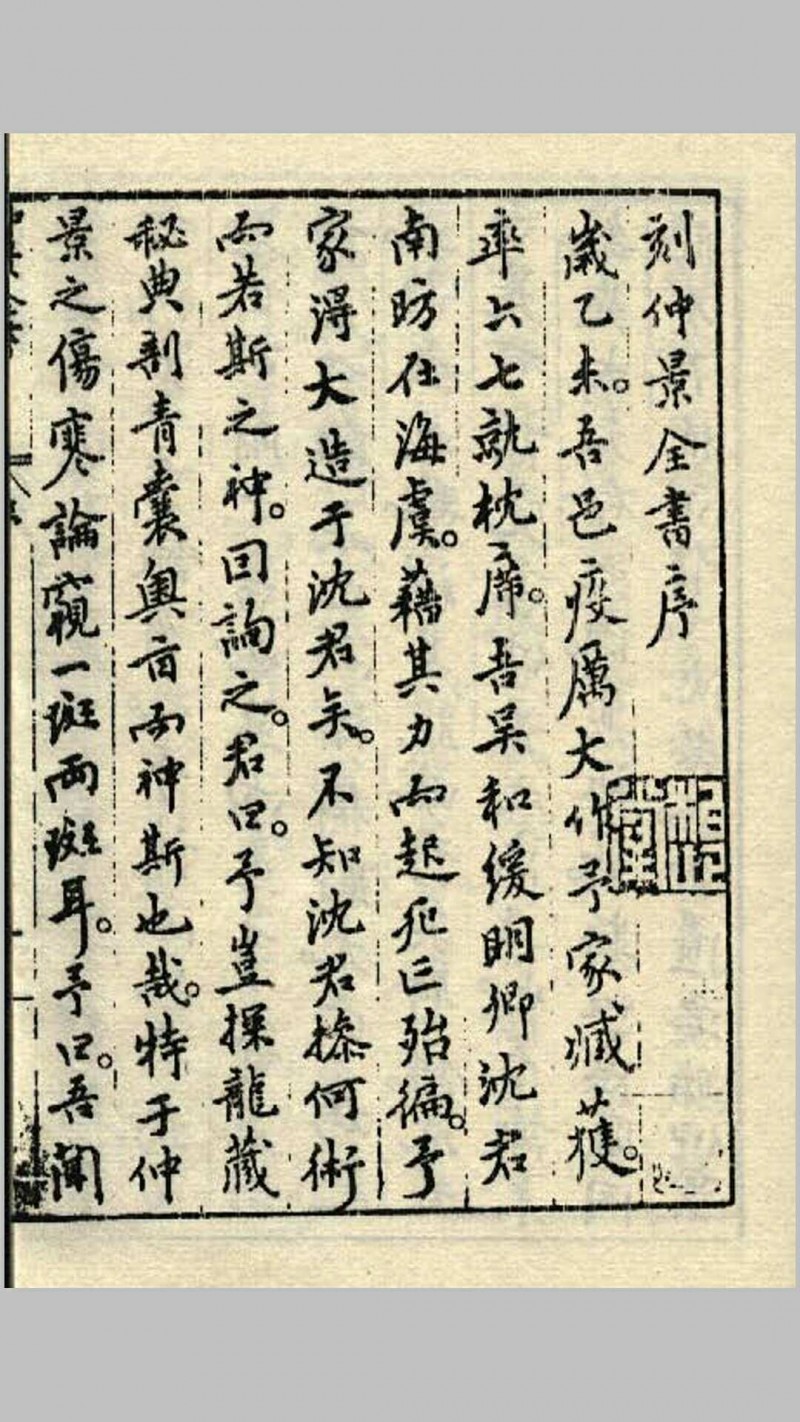 刻仲景全書序
歲乙未。吾邑疫厲大作予家臧獲。
率六七就枕席。吾吳和緩明卿沈君
南昉在海虞。藉其力而起死亡殆徧。予
家得大造于沈君矣。不知沈君操何術
而若斯之神。因詢之。君曰。予豈探龍藏
秘典剖青囊奧旨而神斯也哉。特于仲
景之傷寒論窺一斑兩斑耳。予曰。吾聞